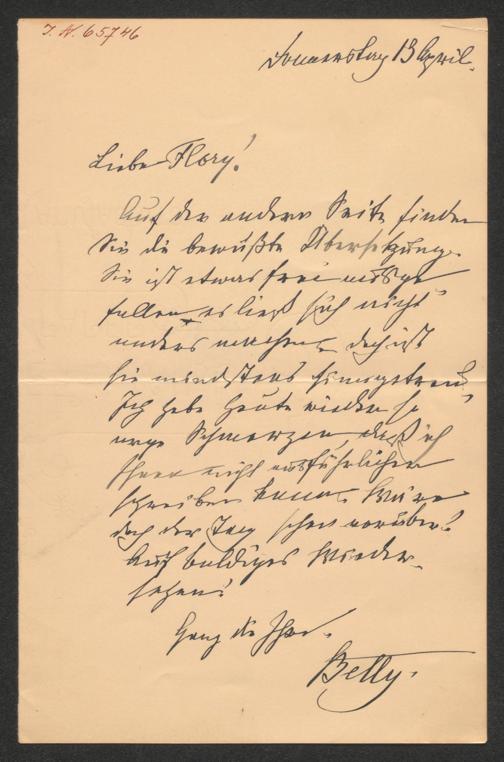 I. N. 65746
Donnerstag 13 April.
Liebe Flory!
Auf der andern Seite finden
Sie die bewußte Übersetzung.
Sie ist etwas frei ausge
fallen, es ließ sich nicht
anders machen, doch ist
sie mindstens sinngetreu.
Ich habe heute wieder so
arge Schmerzen, daß ich
Ihnen nicht ausführlicher
schreiben kann. Wäre
doch der Tag schon vorüber!
Auf baldiges Wieder-
sehen!
Ganz die Ihre.
Betty.